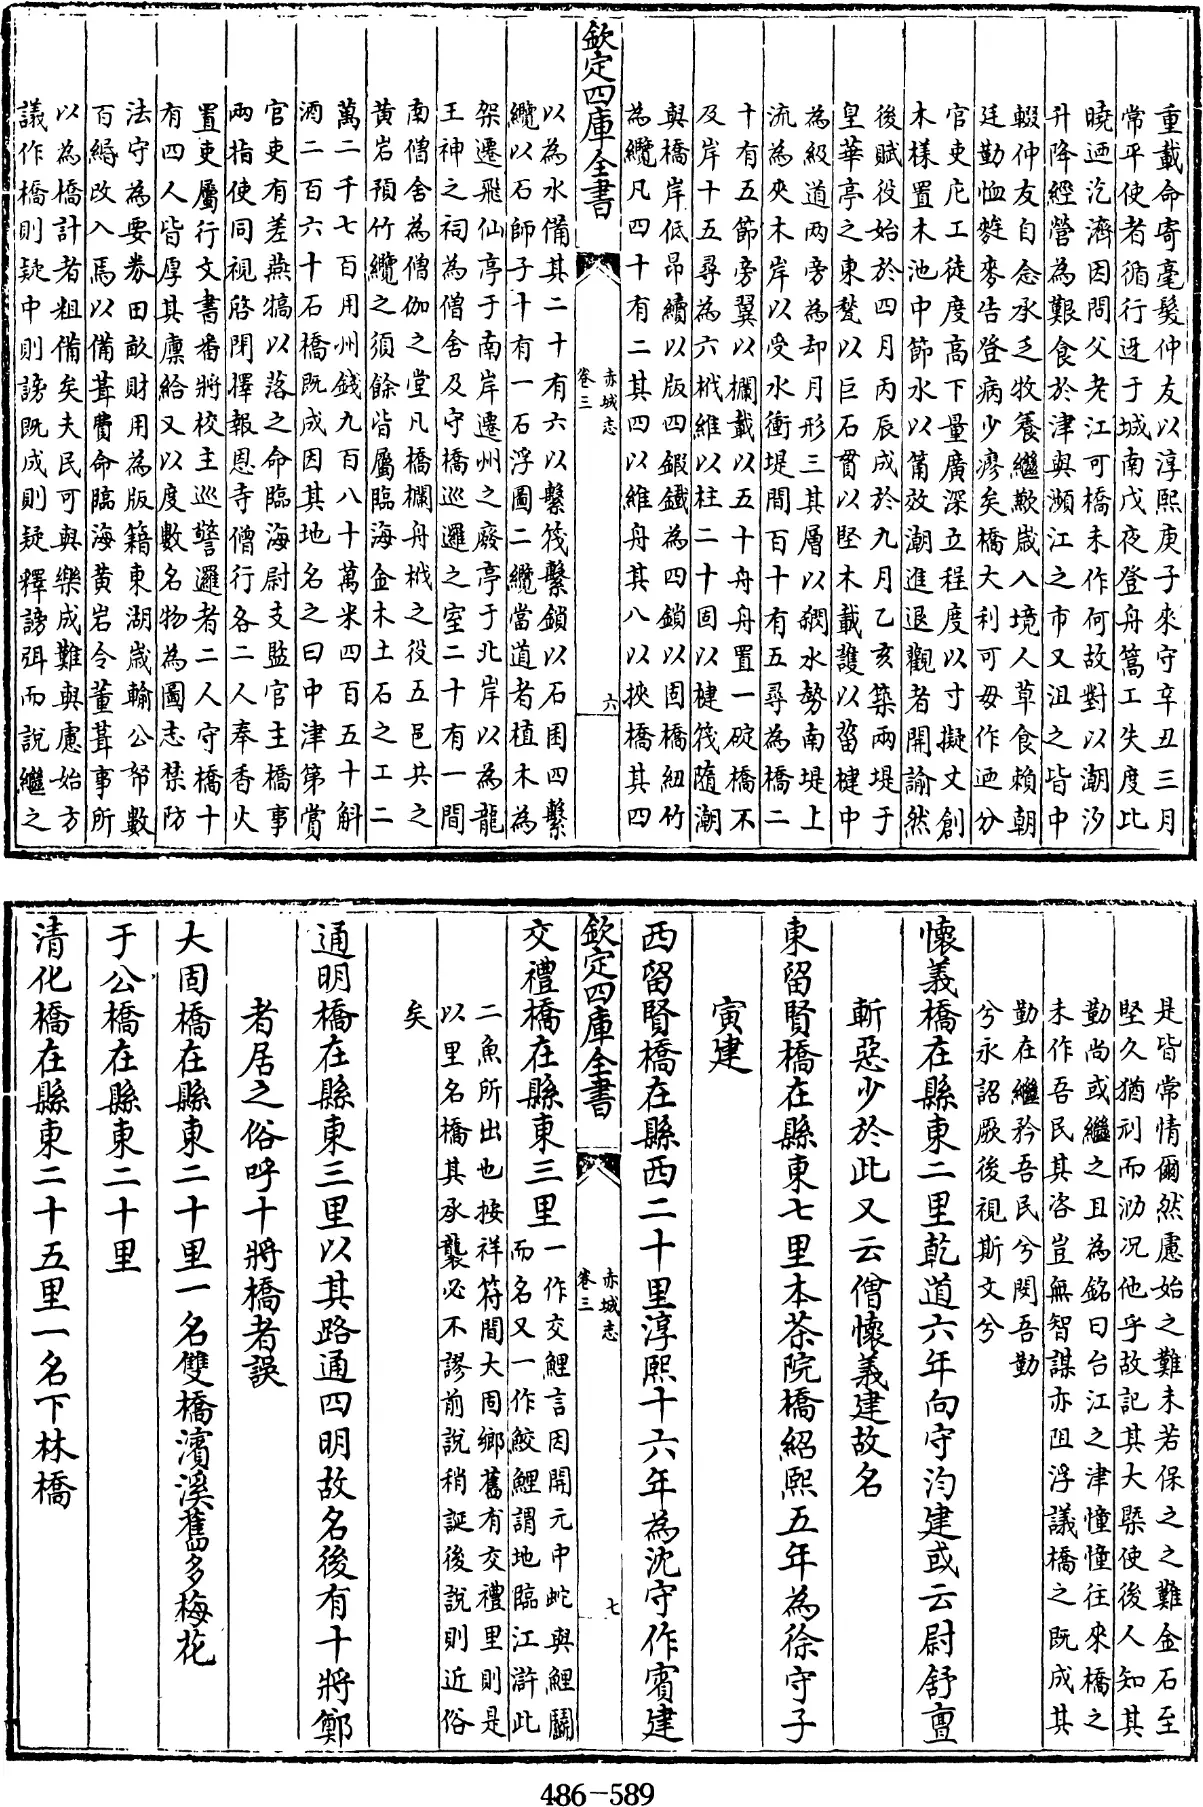 重載命寄毫髮仲友以淳熙庚子來守辛丑三月
常平使者循行迓于城南戊夜登舟篙工失度比
曉迺汔濟因問父老江可橋未作何故對以潮汐
升降經營為艱食於津與瀕江之市又沮之皆中
輟仲友自念承乏牧養繼歉嵗入境人草食賴朝
廷勤恤麰麥告登病少瘳矣橋大利可毋作迺分
官吏庀工徒度高下量廣深立程度以寸擬丈創
木樣置木池中節水以筩效潮進退觀者開諭然
後賦役始於四月丙辰成於九月乙亥築兩堤于
皇華亭之東甃以巨石貫以堅木載護以菑楗中
為級道两旁為却月形三其層以𣙙水勢南堤上
流為夾木岸以受水衝堤間百十有五尋為橋二
十有五節旁翼以欄載以五十舟舟置一碇橋不
及岸十五尋為六栰維以柱二十固以楗筏隨潮
與橋岸低昻續以版四鍛鐵為四鎖以固橋紐竹
為纜凡四十有二其四以維舟其八以挾橋其四
欽定四庫全書
赤城志
卷三
六
以為水備其二十有六以繫筏繫鎖以石囷四繫
纜以石師子十有一石浮圖二纜當道者植木為
架遷飛仙亭于南岸遷州之廢亭于北岸以為龍
王神之祠為僧舍及守橋巡邏之室二十有一間
南僧舍為僧伽之堂凡橋欄舟栰之役五邑共之
黄岩預竹纜之須餘皆屬臨海金木土石之工二
萬二千七百用州錢九百八十萬米四百五十斛
酒二百六十石橋既成因其地名之曰中津第賞
官吏有差燕犒以落之命臨海尉支監官主橋事
兩指使同視啓閉擇報恩寺僧行各二人奉香火
置吏屬行文書番將校主巡警邏者二人守橋十
有四人皆厚其廪給又以度數名物為圖志禁防
法守為要券田畝財用為版籍東湖嵗輸公帑數
百緡改入焉以備葺費命臨海黄岩令董葺事所
以為橋計者粗備矣夫民可與樂成難與慮始方
議作橋則疑中則謗既成則疑釋謗弭而說繼之
是皆常情爾然慮始之難未若保之之難金石至
堅久猶刓而泐况他乎故記其大槩使後人知其
勤尚或繼之且為銘曰台江之津憧憧往來橋之
未作吾民其咨豈無智謀亦阻浮議橋之既成其
勤在繼矜吾民兮閔吾勤
兮永詔厥後視斯文兮
懷義橋在縣東二里乾道六年向守汮建或云尉舒亶
斬惡少於此又云僧懷義建故名
東留賢橋在縣東七里本茶院橋紹熙五年為徐守子
寅建
西留賢橋在縣西二十里淳熙十六年為沈守作賓建
欽定四庫全書
赤城志
卷三
七
交禮橋在縣東三里
一作交鯉言因開元中蛇與鯉鬭
而名又一作鮫鯉謂地臨江滸此
二魚所出也按祥符間大固鄉舊有交禮里則是
以里名橋其承襲必不謬前說稍誕後說則近俗
矣
通明橋在縣東三里以其路通四明故名後有十將鄭
者居之俗呼十將橋者誤
大固橋在縣東二十里一名雙橋濱溪舊多梅花
于公橋在縣東二十里
清化橋在縣東二十五里一名下林橋
486－589